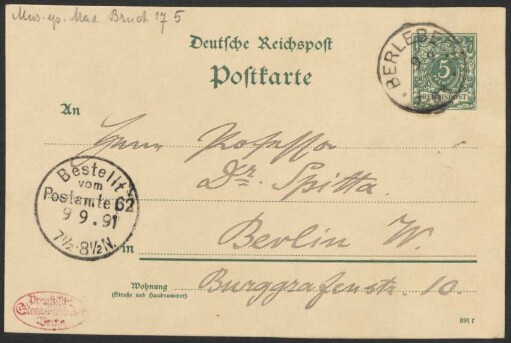 Mus. ep. Max Bruch 175
Deutsche Reichspost
Postkarte
BERLEBE
9 9
5
REICHSPOST
An
Herrn Professor
Dr. Spitta.
Bestellt
vom
Postamte 62
9 9. 91
7½-8½N.
in Berlin W.
Wohnung
(Straße und Hausnummer)
Burggrafenstr. 10.
Berlin
891 f